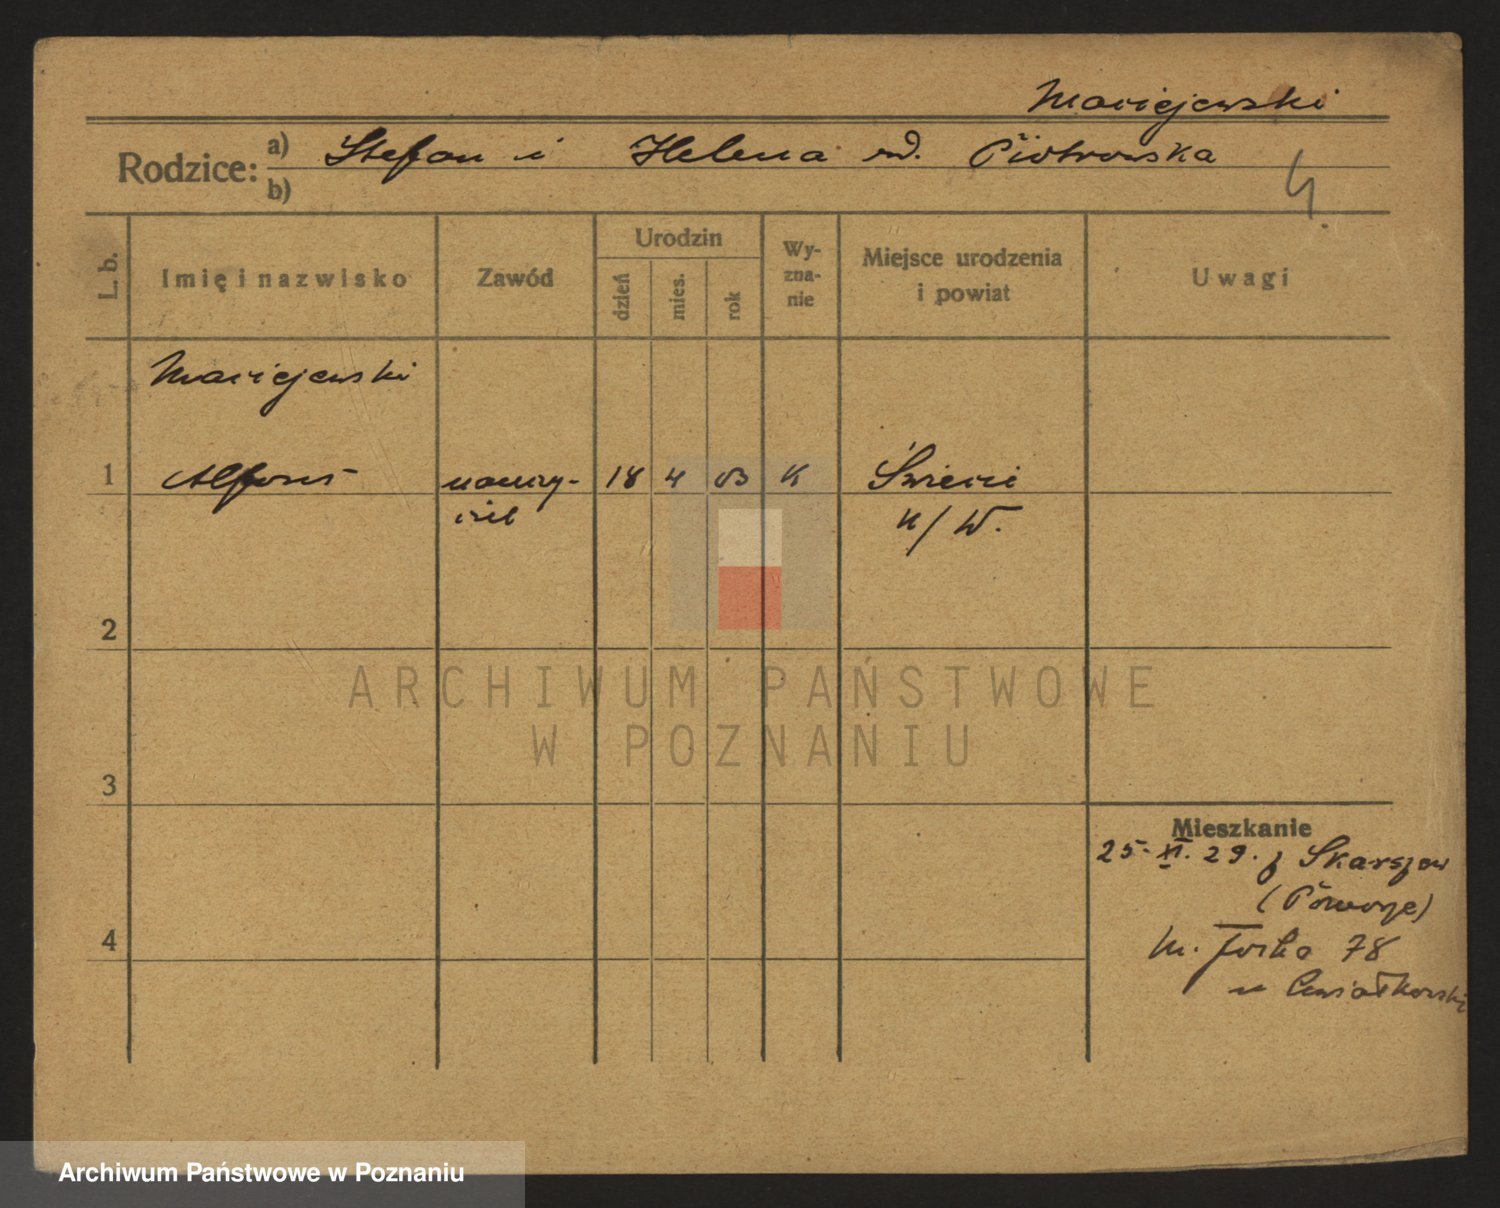 Maciejewski
Rodzice: a) Stefan i Helena rod. Piotrowska
b)
4.
L. b. Imię i nazwisko Zawód Urodzin dzień mies. rok Wyznanie Miejsce urodzenia i powiat Uwagi
Maciejewski
1 Alfons nauczy- 18 4 03 K Świecie
ciel n/W.
2
ARCHIWUM PAŃSTWOWE
W POZNANIU
3
Mieszkanie
25. XI. 29. z Skarszew
(Pomorze)
4
M. Focha 78
u Kwiatkowski
Archiwum Państwowe w Poznaniu